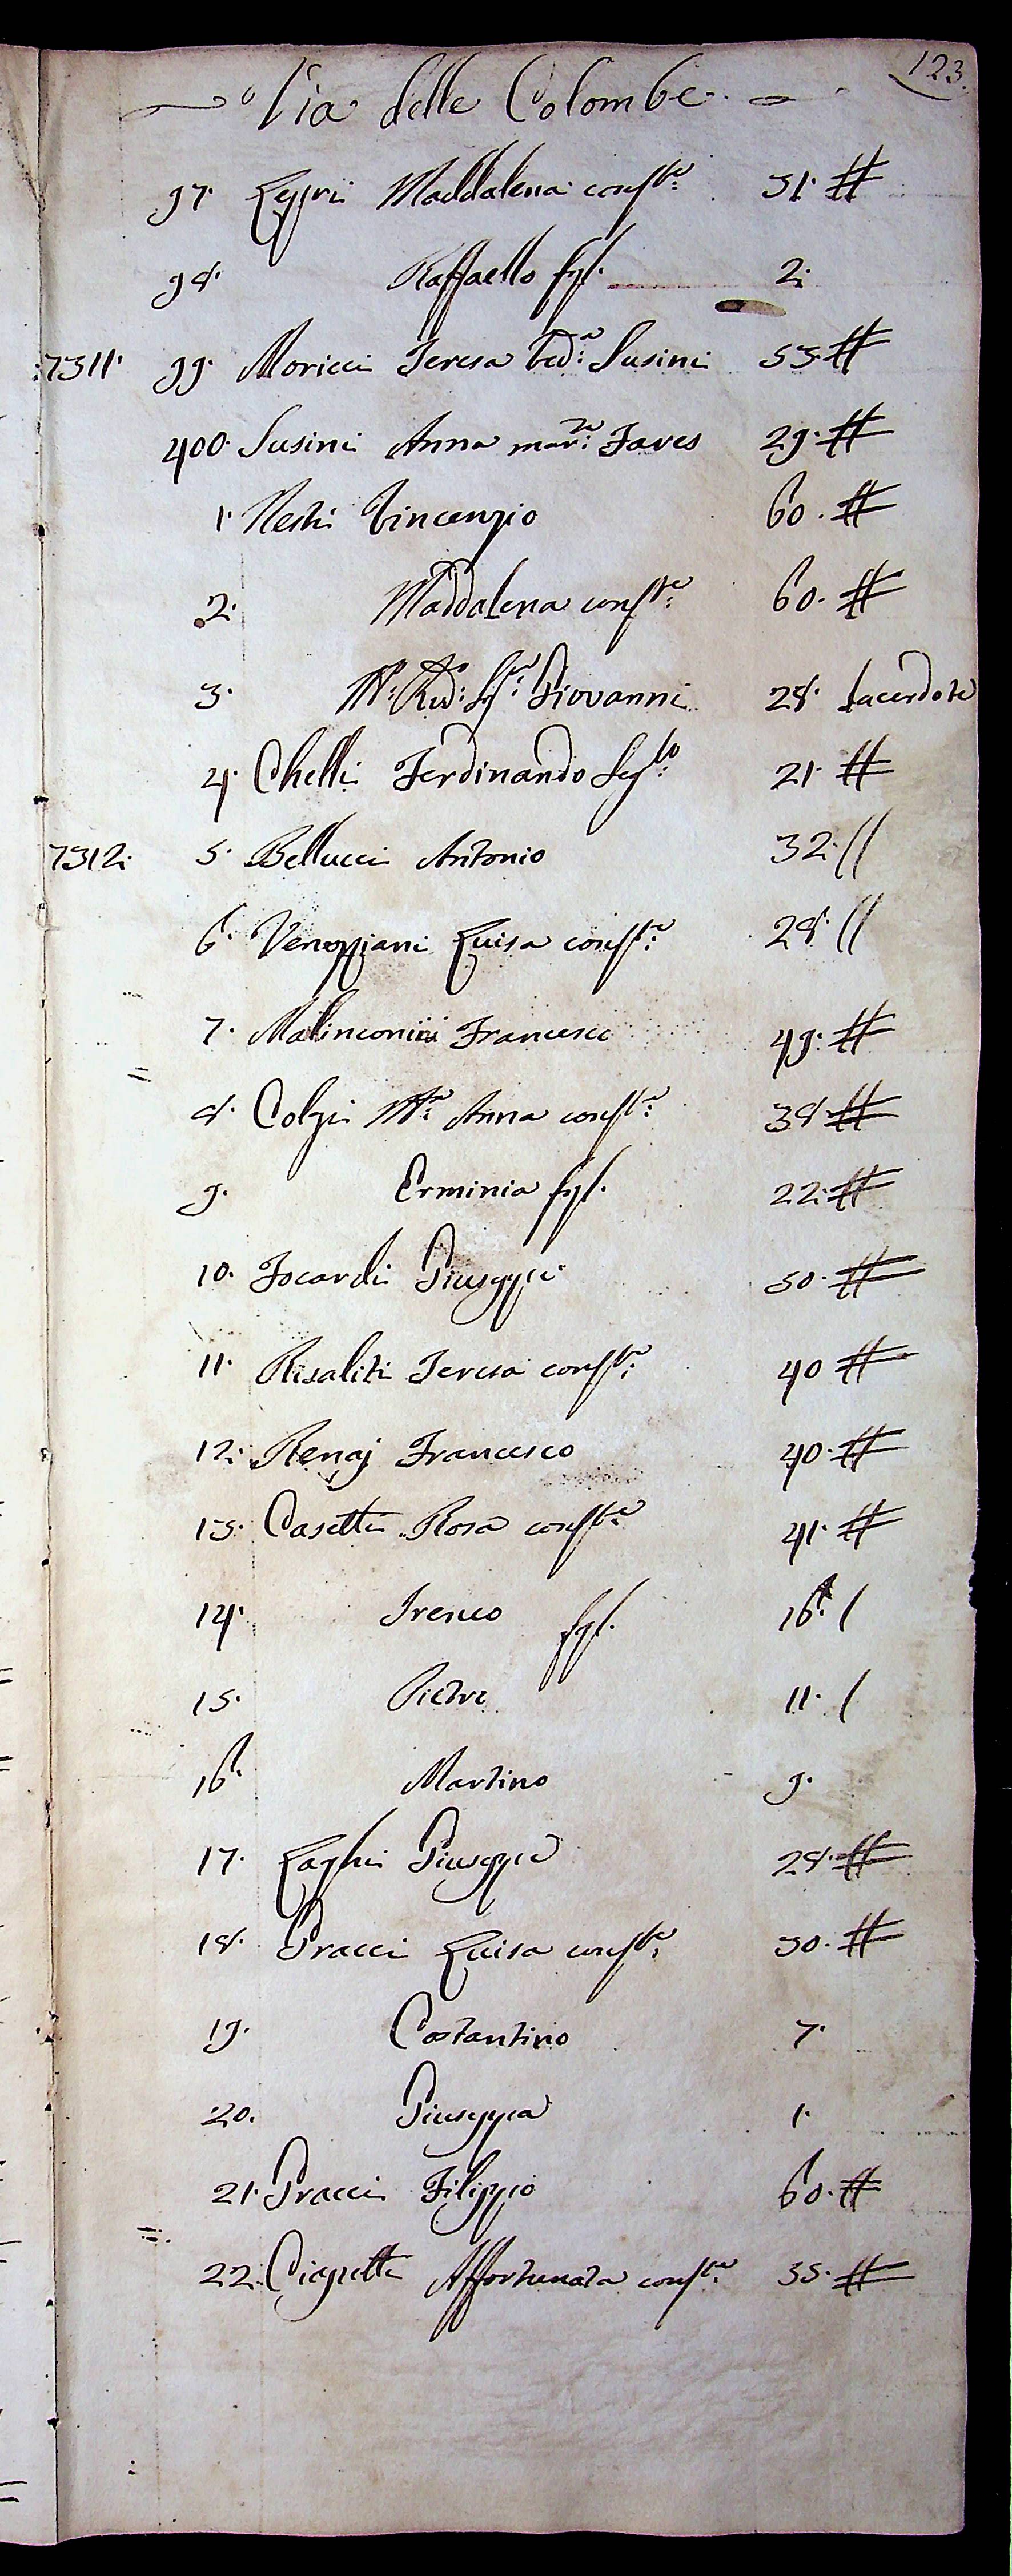 123.
Via delle Colombe.
97. Leppri Maddalena conste: 31. #
98. Raffaello fgl. 2.
7311. 99. Moricci Teresa Veda: Susini 53 #
400. Susini Anna marta: Faves 29. #
1. Nesti Vincenzio 60. #
2. Maddalena conste: 60. #
3. Mto: Redo: Sigre: Giovanni 28. Sacerdote
4. Chelli Ferdinando Segto: 21. #
7312. 5. Bellucci Antonio 32. //
6. Veneziani Luisa conste: 28. //
7. Malinconici Francesco 49. #
8. Colzi Ma: Anna conste: 38. #
9. Erminia fgl. 22. #
10. Focardi Giuseppe 50. #
11. Risaliti Teresa conste: 40 #
12. Renaj Francesco 40. #
13. Casetti Rosa conste: 41. #
14. Ireneo fgl. 16. /
15. Pietro 11. /
16. Martino 9.
17. Laghi Giuseppe 28. #
18. Gracci Luisa conste: 30. #
19. Costantino 7.
20. Giuseppa 1.
21. Gracci Filippo 60. #
22. Affortunata conste: 35. #